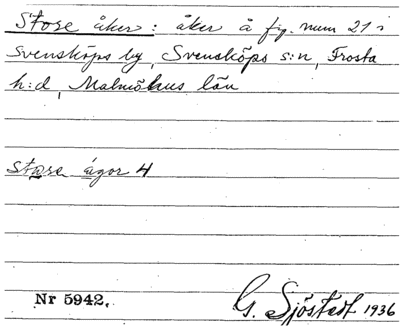 Store åker: åker å fig. num 21 i
Svensköps by, Svensköps s:n, Frosta
h:d, Malmöhus län
Store ågor 4
Nr 5942.
G. Sjöstedt 1936